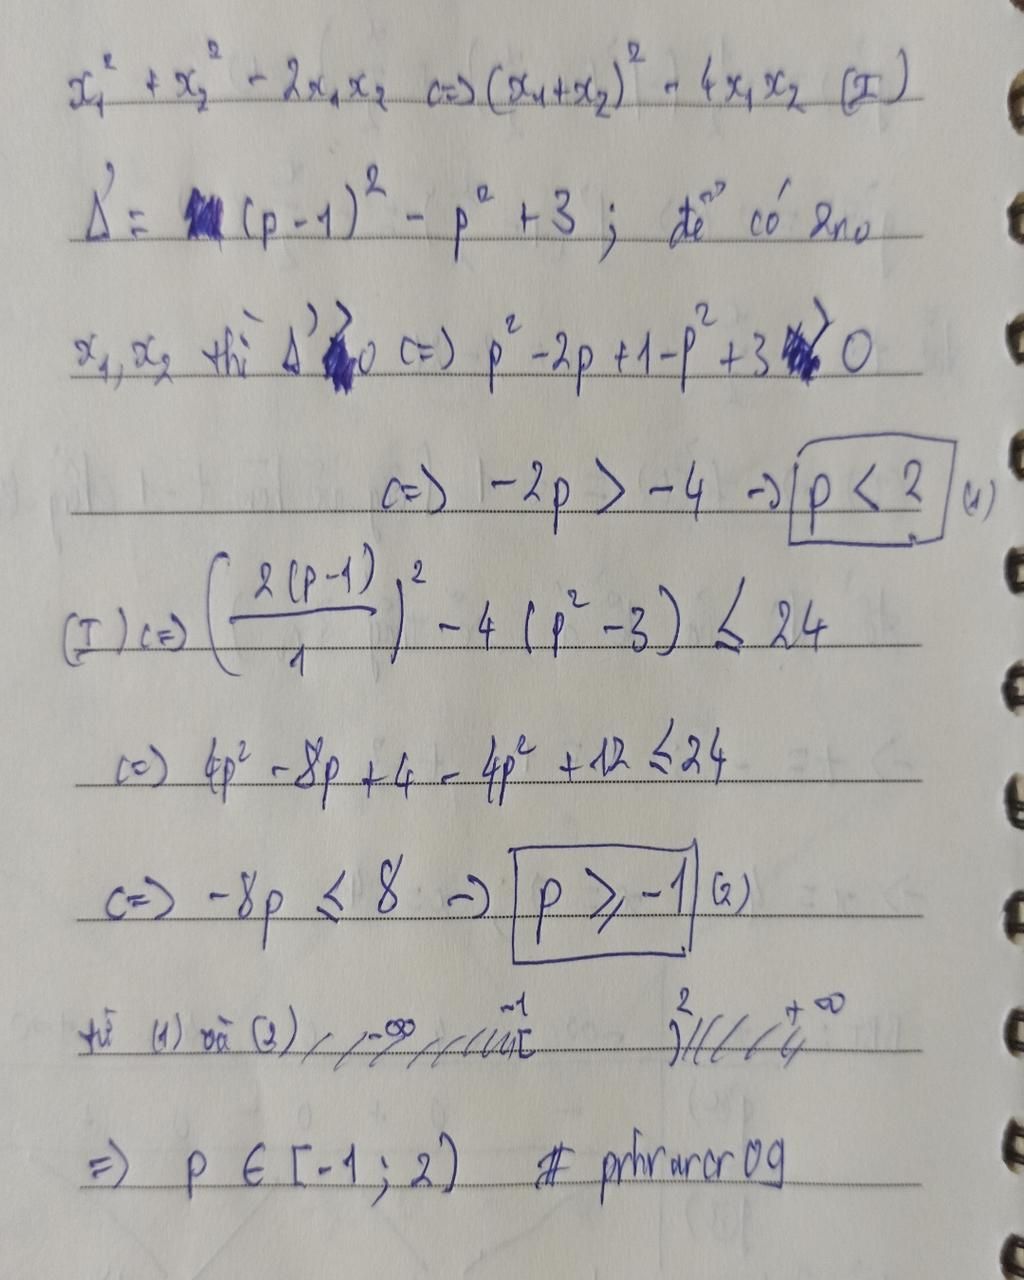 x₁² + x₂² - 2x₁x₂ <=> (x₁+x₂)² - 4x₁x₂ (I)
Δ' = (p-1)² - p² + 3 ; để có 2no
x₁, x₂ thì Δ' > 0 <=> p² - 2p + 1 - p² + 3 > 0
<=> -2p > -4 -> p < 2 (1)
(I) <=> (2(p-1)/1)² - 4(p² - 3) ≤ 24
<=> 4p² - 8p + 4 - 4p² + 12 ≤ 24
<=> -8p ≤ 8 -> p ≥ -1 (2)
từ (1) và (2) -∞ -1 [ 2 ) +∞
=> p ∈ [-1 ; 2) # prhrarcr09